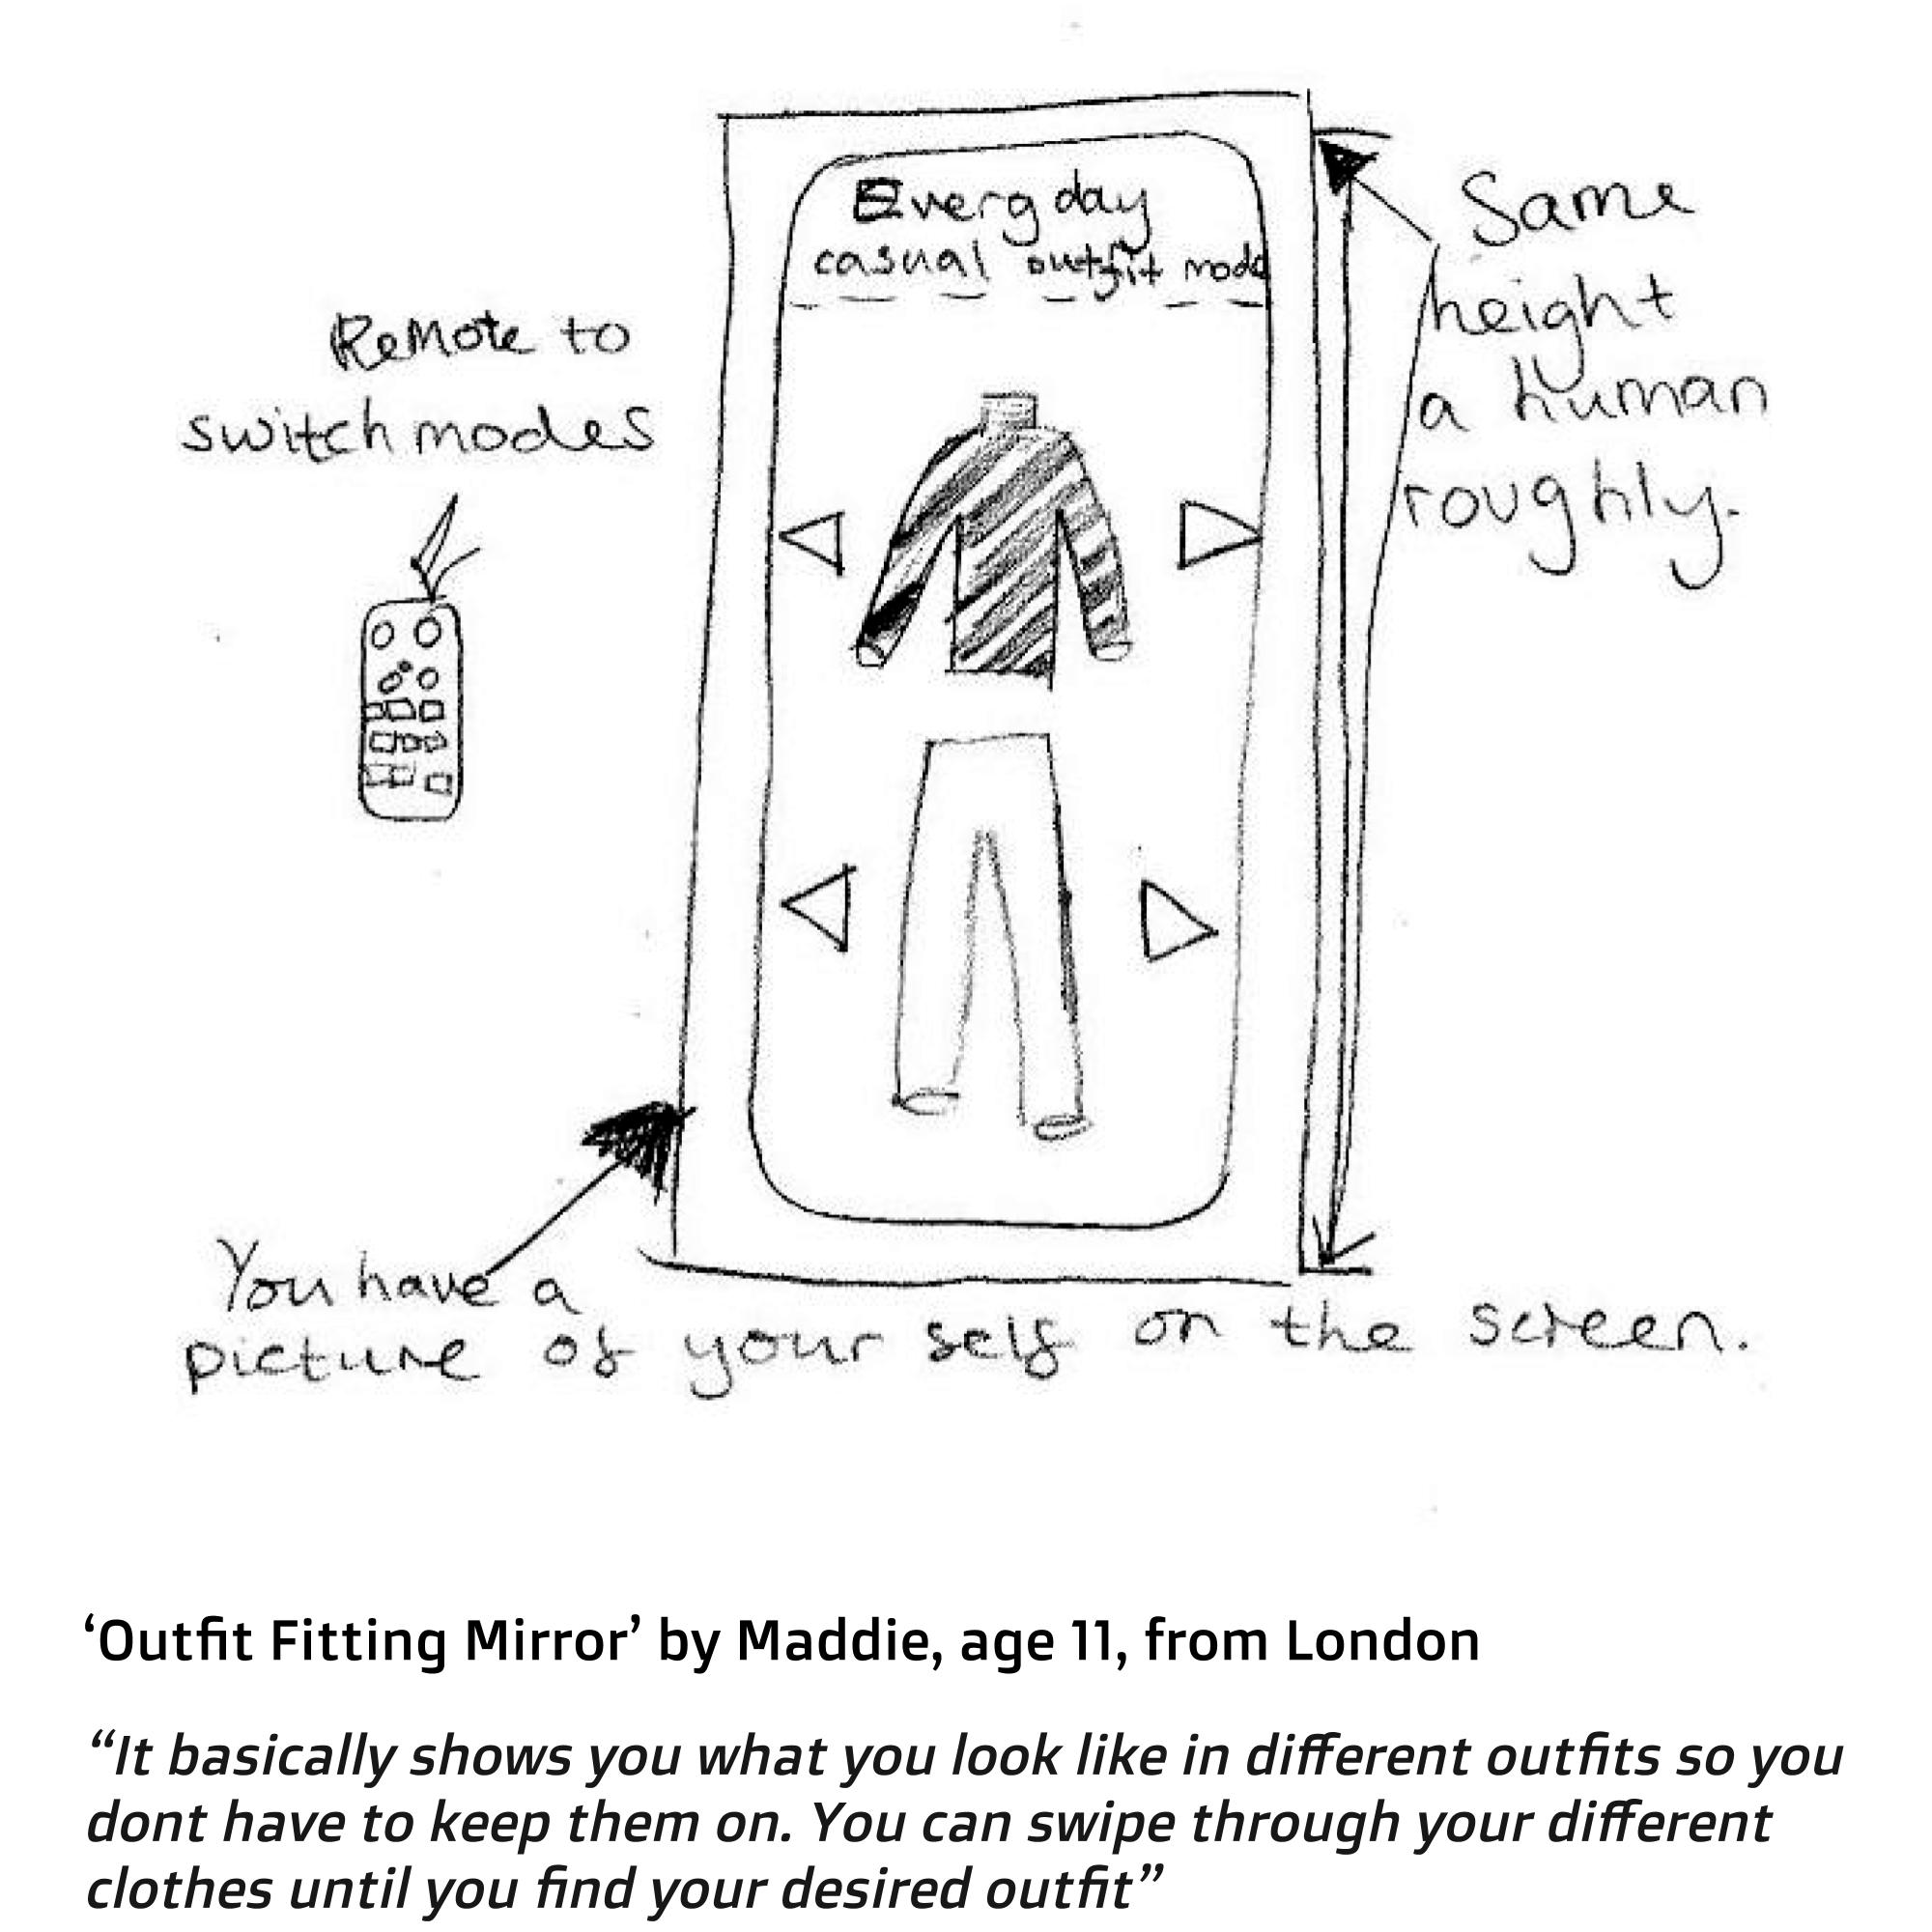 Everyday
casual outfit mode
Remote to
switch modes
Same
height
a human
roughly.
You have a
picture of your self on the screen.
‘Outfit Fitting Mirror’ by Maddie, age 11, from London
“It basically shows you what you look like in different outfits so you
dont have to keep them on. You can swipe through your different
clothes until you find your desired outfit”